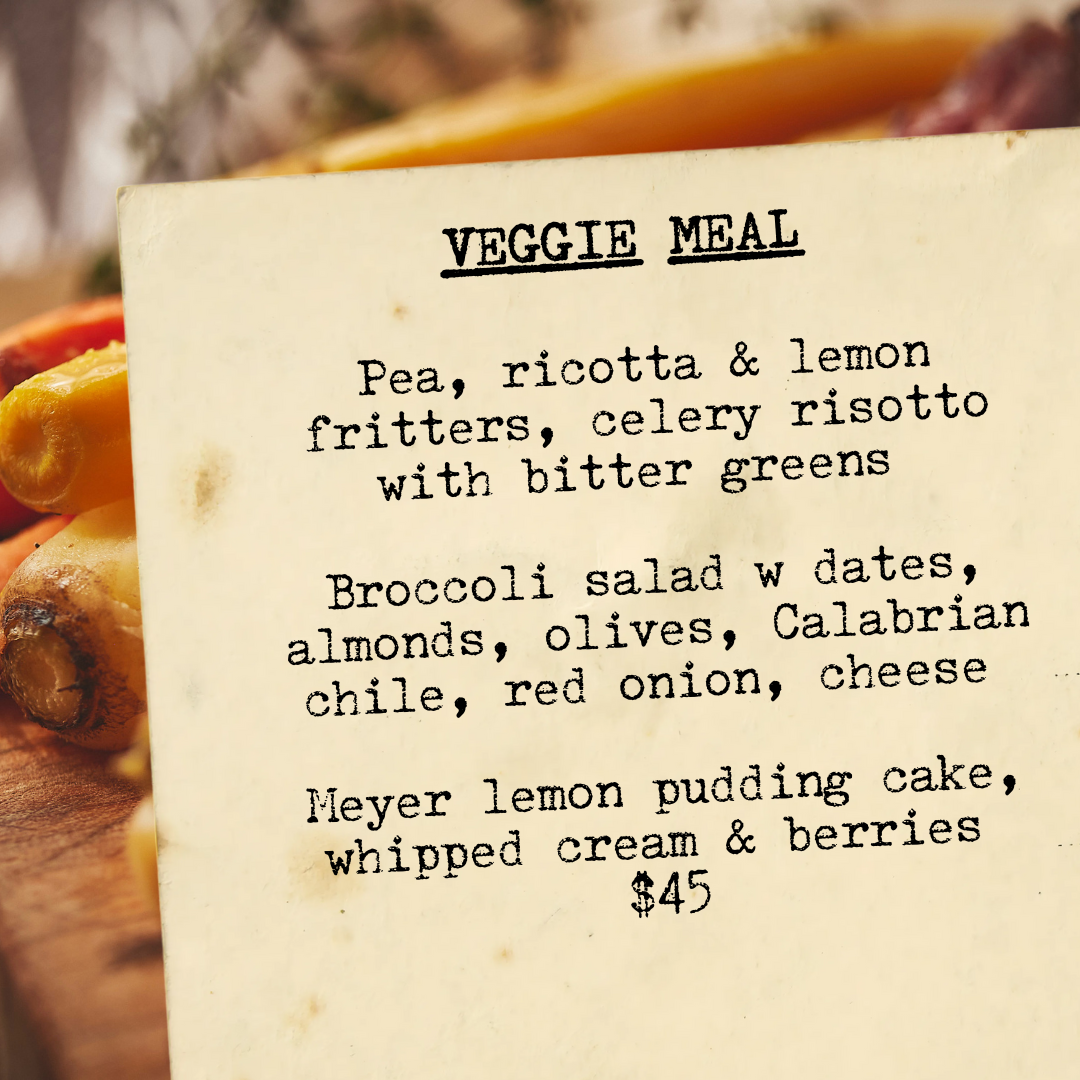 VEGGIE MEAL
Pea, ricotta & lemon
fritters, celery risotto
with bitter greens
Broccoli salad w dates,
almonds, olives, Calabrian
chile, red onion, cheese
Meyer lemon pudding cake,
whipped cream & berries
$45